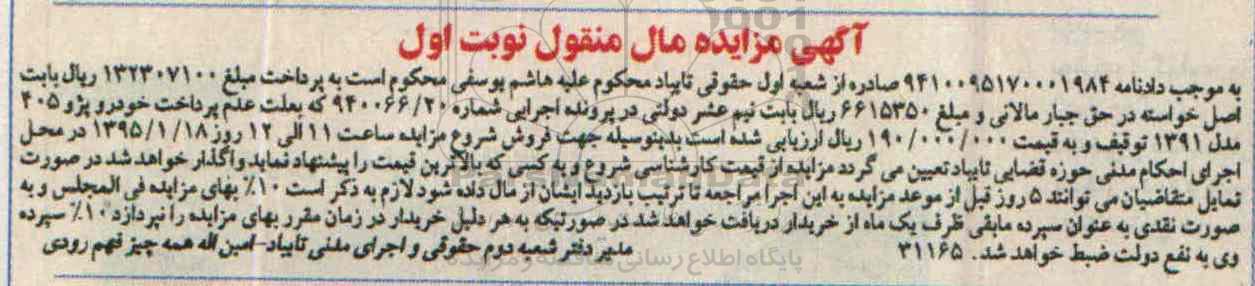 آگهی مزایده مال منقول نوبت اول
به موجب دادنامه ۹۴۱۰۰۹۵۱۷۰۰۰۱۹۸۴ صادره از شعبه اول حقوقی تایباد محکوم علیه هاشم یوسفی محکوم است به پرداخت مبلغ ۱۳۲۳۰۷۱۰۰ ریال بابت
اصل خواسته در حق جبار مالانی و مبلغ ۶۶۱۵۳۵۰ ریال بابت نیم عشر دولتی در پرونده اجرایی شماره ۹۴۰۰۶۶/۲۰ که بعلت عدم پرداخت خودرو پژو ۴۰۵
مدل ۱۳۹۱ توقیف و به قیمت ۱۹۰/۰۰۰/۰۰۰ ریال ارزیابی شده است بدینوسیله جهت فروش شروع مزایده ساعت ۱۱ الی ۱۲ روز ۱۳۹۵/۱/۱۸ در محل
اجرای احکام مدنی حوزه قضایی تایباد تعیین می گردد مزایده از قیمت کارشناسی شروع و به کسی که بالاترین قیمت را پیشنهاد نماید واگذار خواهد شد در صورت
تمایل متقاضیان می توانند ۵ روز قبل از موعد مزایده به این اجرا مراجعه تا ترتیب بازدید ایشان از مال داده شود لازم به ذکر است ۱۰٪ بهای مزایده فی المجلس و به
صورت نقدی به عنوان سپرده مابقی ظرف یک ماه از خریدار دریافت خواهد شد در صورتیکه به هر دلیل خریدار در زمان مقرر بهای مزایده را نپردازد ۱۰٪ سپرده
وی به نفع دولت ضبط خواهد شد. ۳۱۱۶۵ مدیر دفتر شعبه دوم حقوقی و اجرای مدنی تایباد-امین اله همه چیز فهم رودی
پایگاه اطلاع رسانی